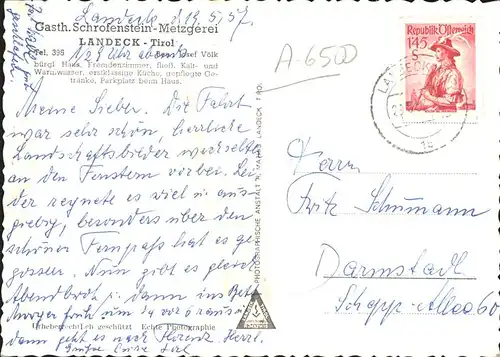 Landeck, d. 19.5.57.
Gasth. Schrofenstein-Metzgerei
LANDECK - Tirol
Tel. 395 Bes. Josef Völk
bürgl Haus, Fremdenzimmer, fließ. Kalt- und
Warmwasser, erstklassige Küche, gepflegte Ge-
tränke, Parkplatz beim Haus.
Meine Lieben. Die Fahrt
war sehr schön, herrliche
Landschaftsbilder wechselten
an den Fenstern vorbei. Lei-
der regnete es viel u.
besonders über den
schönen Fernpaß hat es ge-
gossen. Nun gibt es gleich
Abendbrot u. dann ins Bett
Morgen früh um
dann geht es nach Florenz. Herzl.
Urheberrechtlich geschützt Echte Photographie
PHOTOGRAPHISCHE ANSTALT R. MATHIS LANDECK TIROL
A-6500
Republik Österreich
1.45
S
LANDECK
1a
Herrn
Fritz Schumann
Darmstadt
Schepp-Allee 60